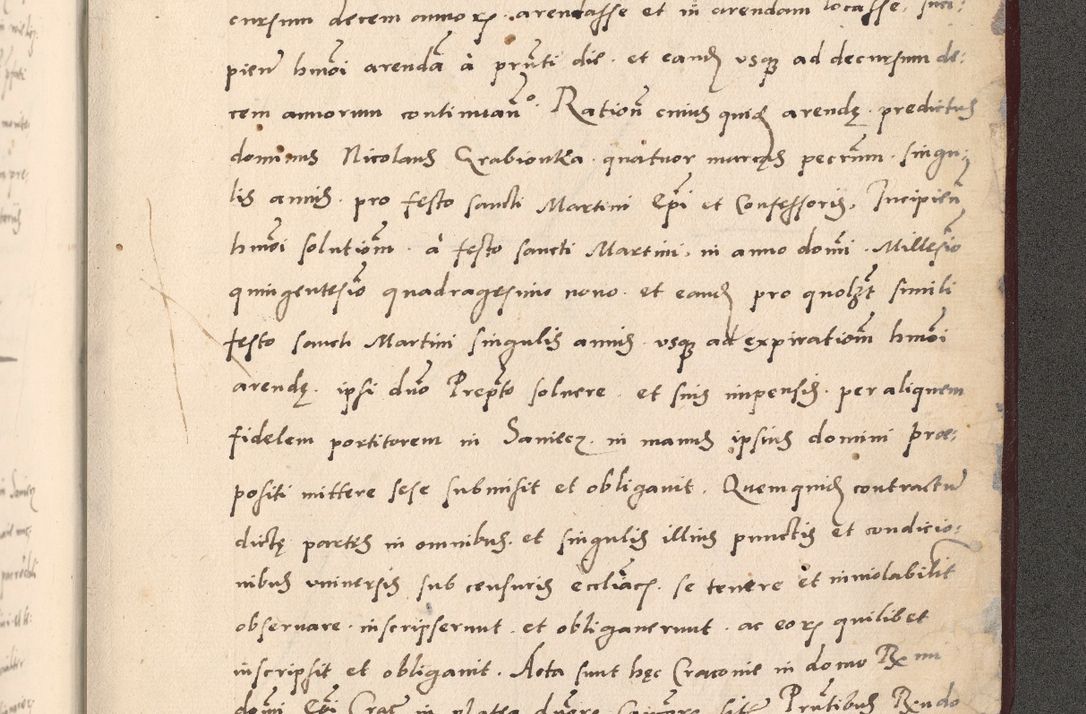 cursum decem annorꝝ arendasse et in arendam locasse, inci:
pien̄ hm̄oi arendā à pn̄ti die et eand̄ usq̄ ad decursum de:
cem annorum continuan̄o. Ration̄ cuius quid̄ arendę predictus
dominus Nicolaus Grabionka quatuor marcas pecun̄ singu:
lis annis pro festo sancti Martini Ep̄i et Confessoris, Incipien̄
hm̄oi solution̄ à festo sancti Martini, in anno dom̄i Millesīo
quingentesīo quadragesimo nono et eand̄ pro quolz̄t simili
festo sancti Martini singulis annis usq̄ ad expiration̄ hm̄oi
arendę ipsi dn̄o Prep̄to solvere et suis impensis per aliquem
fidelem portitorem in Saniecz in manus ipsius domini præ:
positi mittere sese submisit et obligavit. Quemquid̄ contractū
dictę partes in omnibus et singulis illius punctis et condicio:
nibus universis sub censuris eccl̄iac̄ se tenere et inviolabilit̄
observare inscripserunt et obligaverunt ac eorꝝ quilibet
inscripsit et obligavit. Acta sunt hęc Cracovie in domo R
dom̄i Ep̄i Crac̄ in platea Prn̄tibus